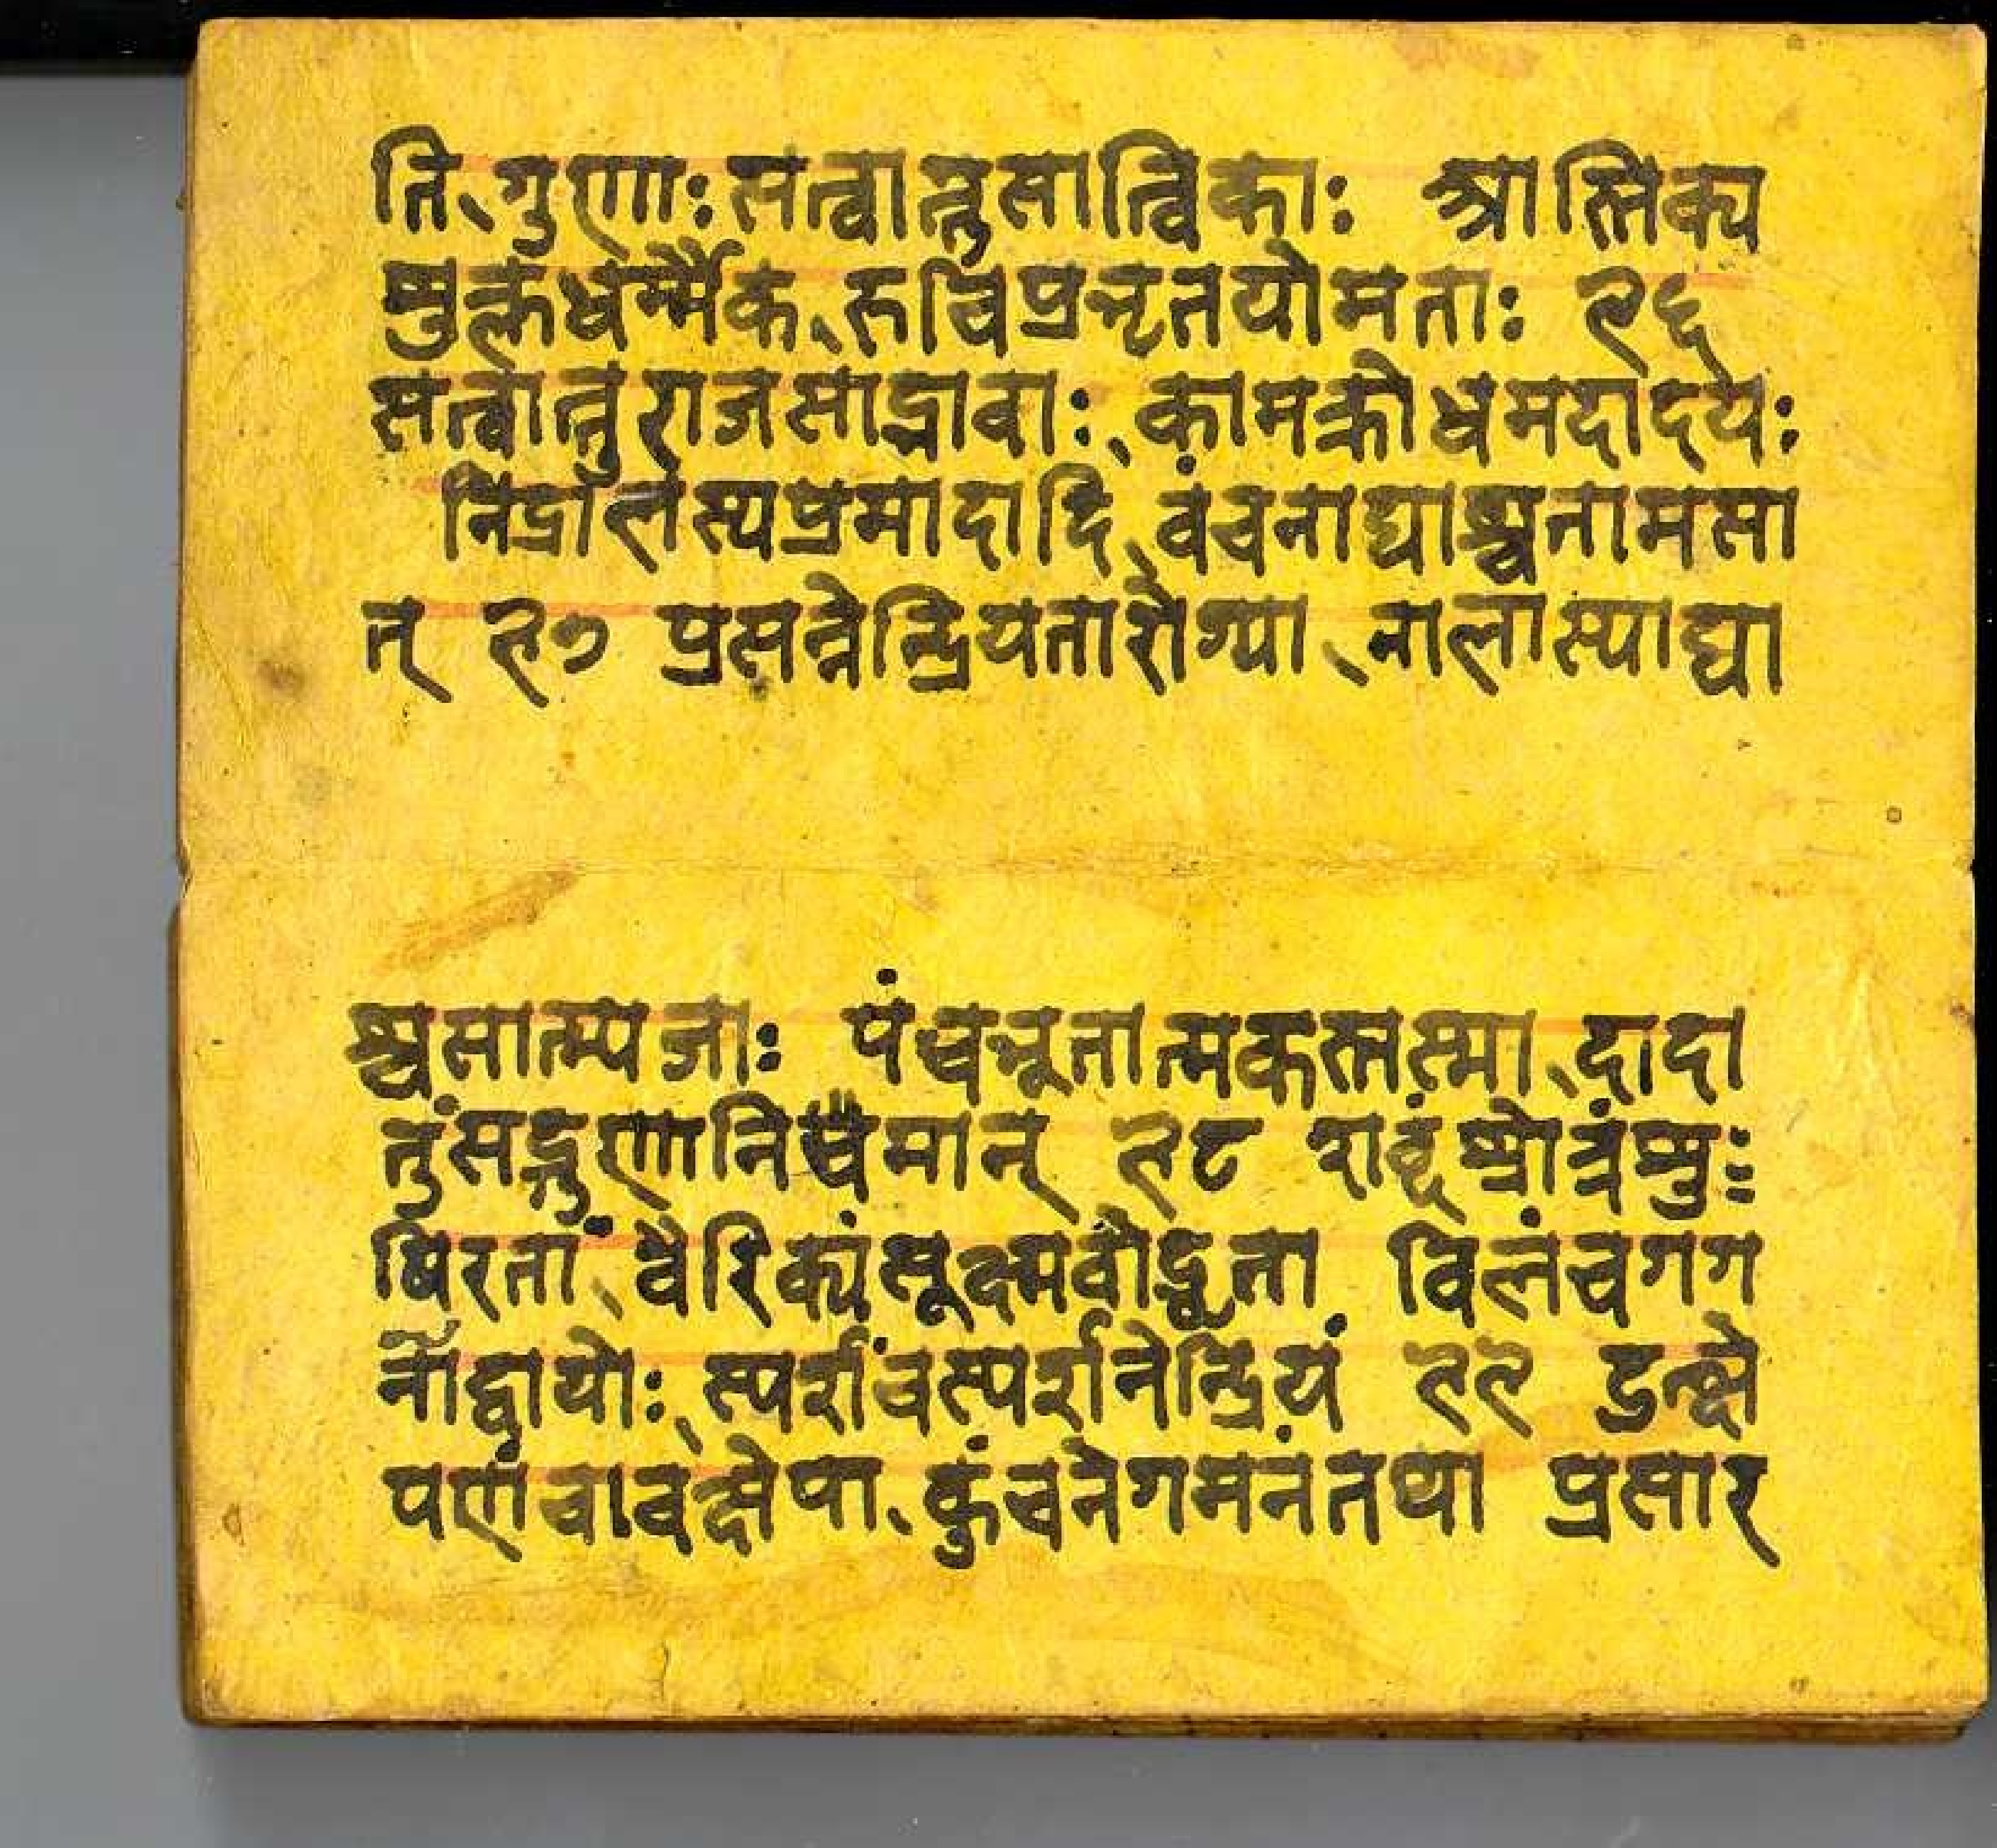 ति,गुणाः सत्वात्तुसात्विकाः आस्तिक्य
षुक्लधर्म्मैक,रुचिप्रभृतयोमताः २६
सत्वात्तुराजसाद्भावाः,कामक्रोधमदादयः
निद्रालस्यप्रमादादि,वंचनाद्याश्चतामसा
त् २७ प्रसन्नेन्द्रियतारोग्या,नालास्याद्या
श्चसात्म्यजाः पंचभूतात्मकस्तस्मा,दादा
तुंसद्गुणानिमान् २८ शब्दं श्रोत्रंषु
षिरतां,वैरिक्यंसूक्ष्मवोद्धृता विलंचगग
नाद्वायोः,स्पर्शंचस्पर्शनेन्द्रियं २९ उत्क्षे
पणंचावक्षेपा,कुंचनेगमनंतथा प्रसार